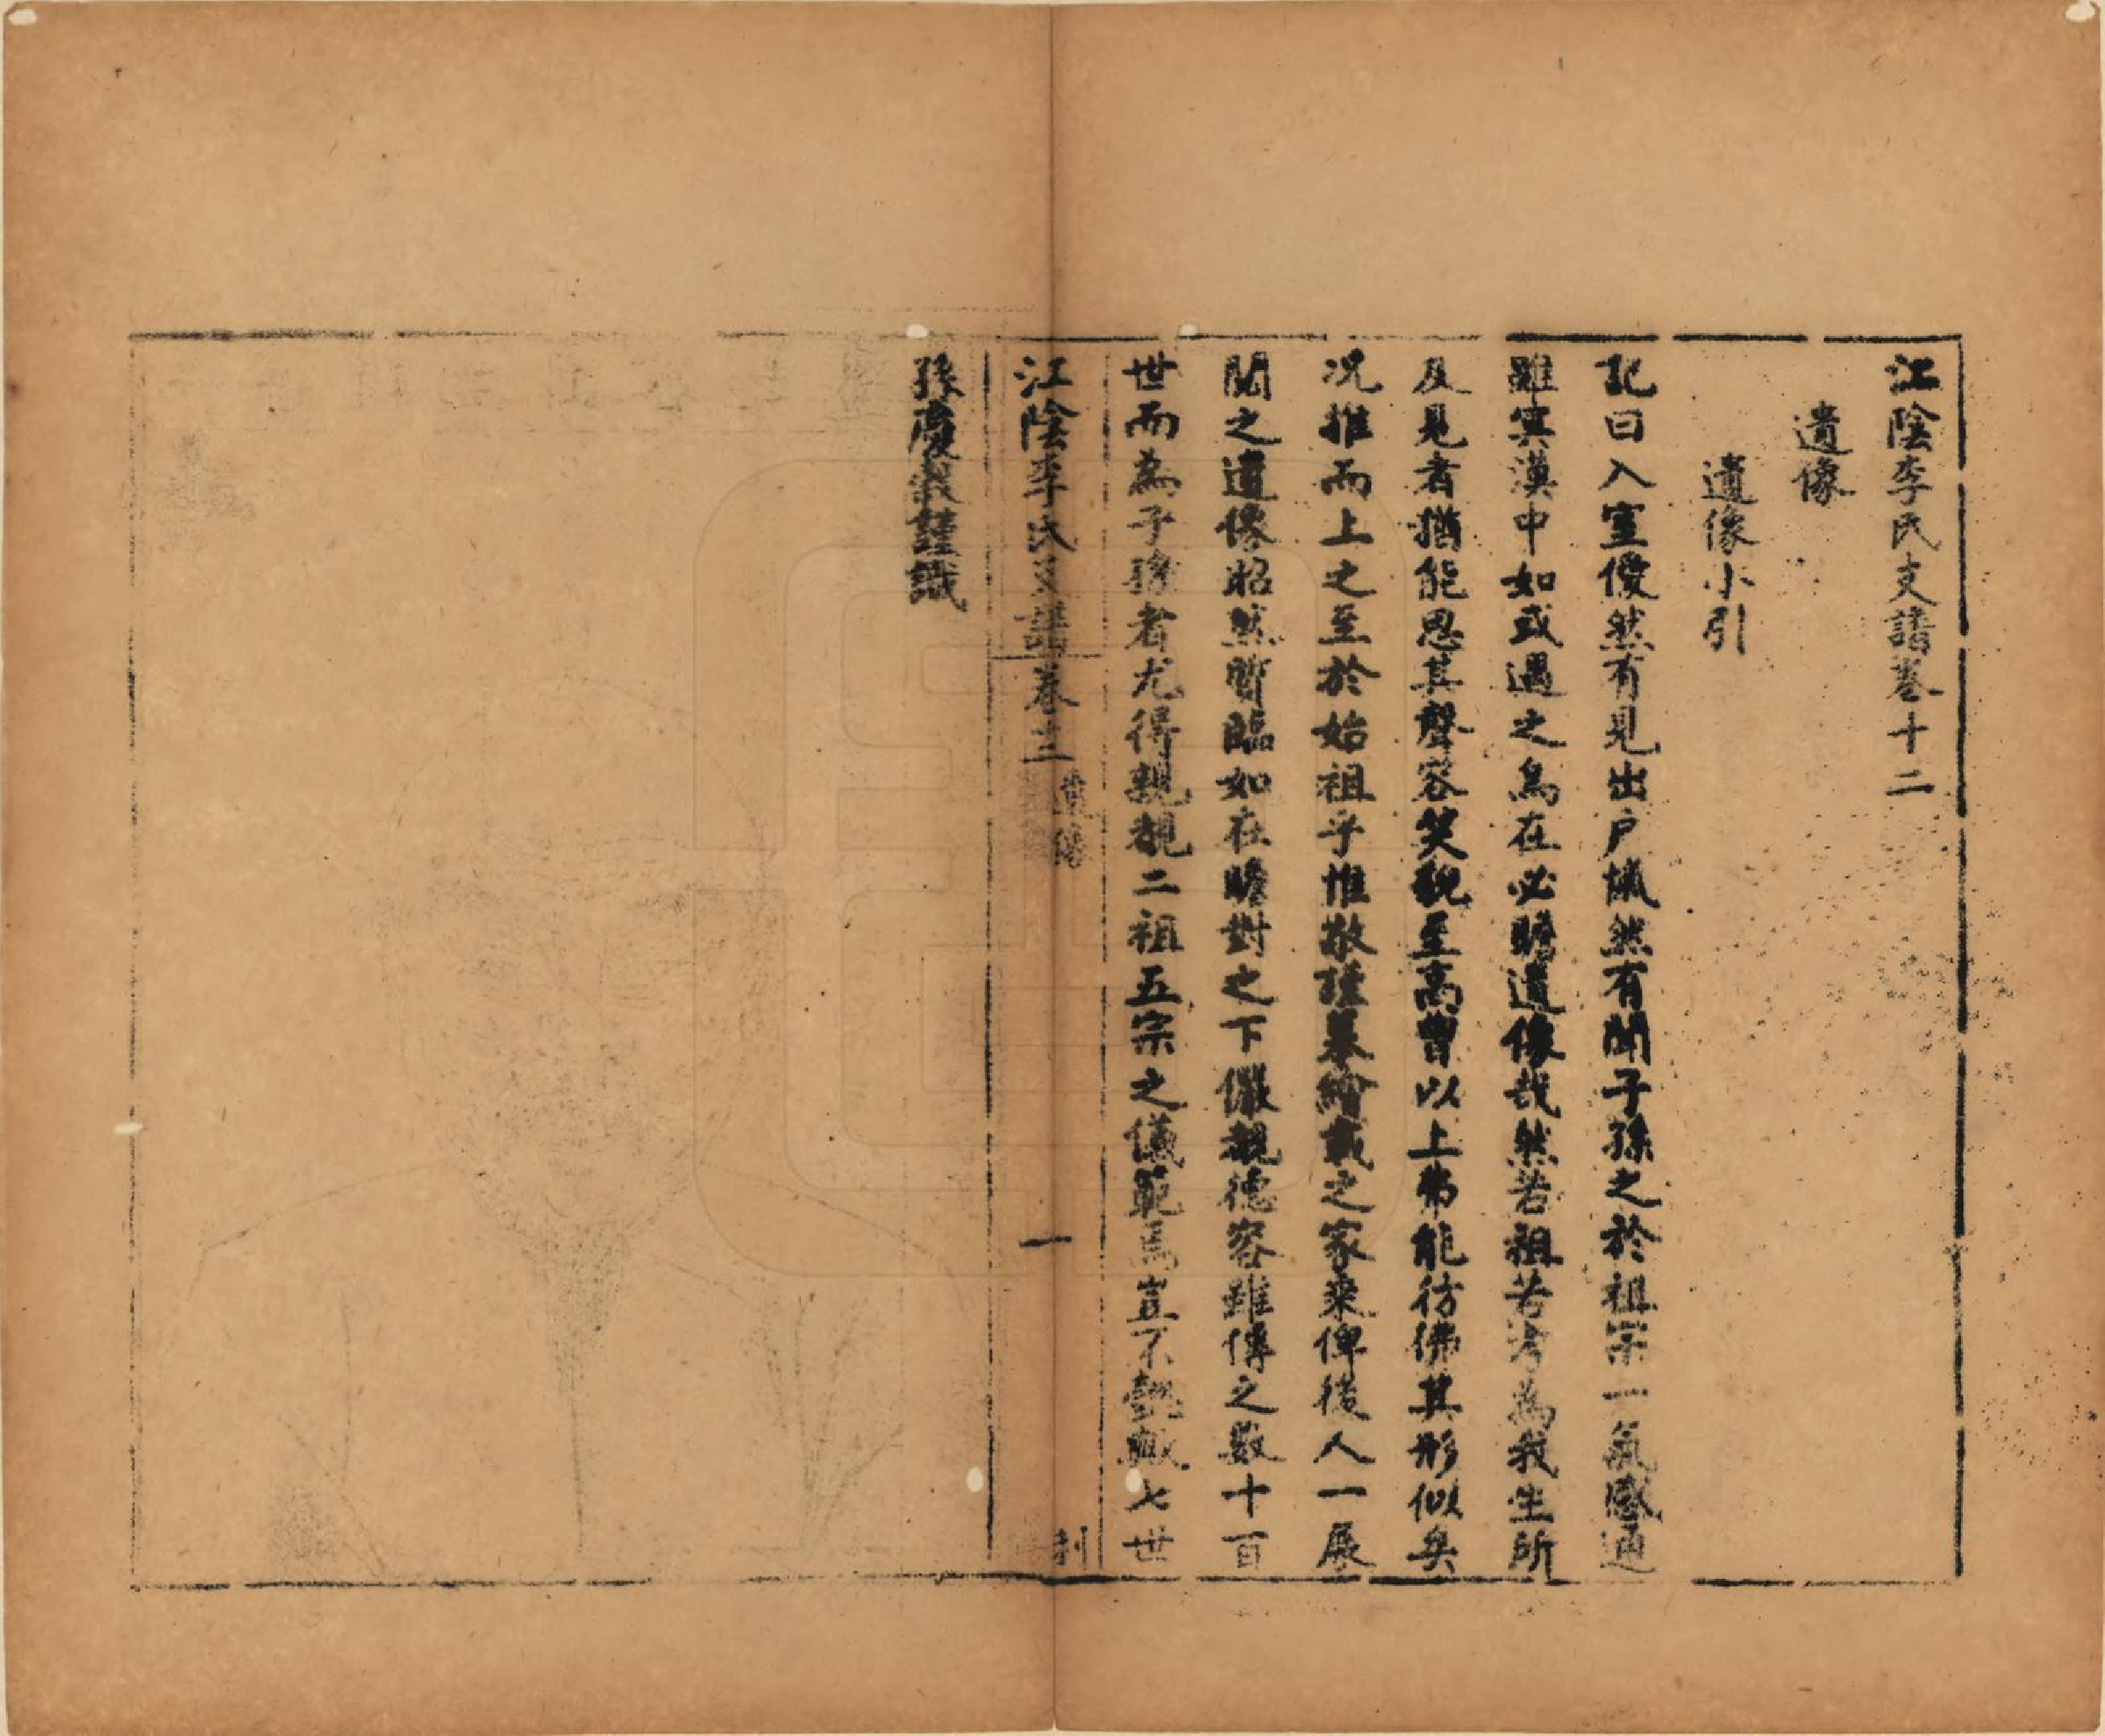 江陰李氏支譜卷十二
遺像
遺像小引
記曰入室僾然有見出戶愾然有聞子孫之於祖宗一氣感通
雖冥漠中如或遇之烏在必瞻遺像哉然若祖若考為我生所
及見者猶能思其聲容笑貌至高曾以上弗能彷彿其形似矣
况推而上之至於始祖乎惟敬謹摹繪載之家乘俾後人一展
閱之遺像昭然質臨如在瞻對之下儼覩德容雖傳之數十百
世而為子孫者尤得親覩二祖五宗之儀範焉豈不懿歟七世
江陰李氏支譜卷十二 遺像 一
孫慶 謹識